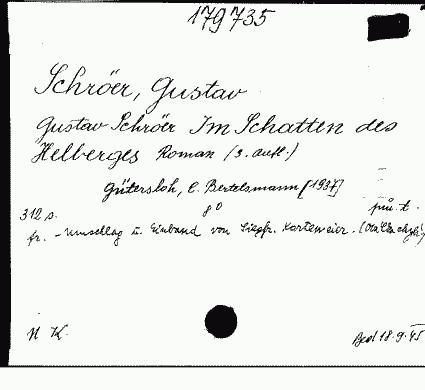 179735
Schröer, Gustav
Gustav Schröer Im Schatten des
Helberges Roman (3. Aufl.)
Gütersloh, C. Bertelsmann [1937]
312 s. 8° pův. t.
fr. - Umschlag u. Einband von Siegfr. Kortemeier.
N K. 18.9.45